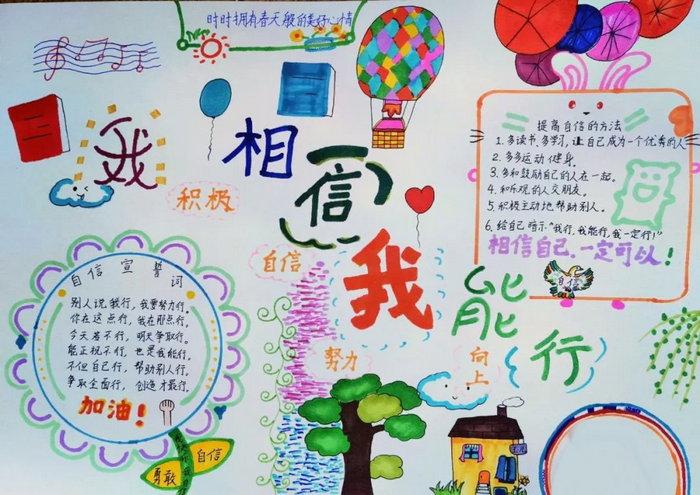 时时拥有春天般的美好心情
我相信我能行
积极
自信
努力
向上
提高自信的方法
1. 多读书,多学习,让自己成为一个优秀的人
2. 多多运动健身。
3. 多和鼓励自己的人在一起。
4. 和乐观的人交朋友。
5. 积极主动地帮助别人。
6. 给自己暗示“我行,我能行,我一定行!”
相信自己,一定可以!
自信
自信宣誓词
别人说我行,我要努力行。
你在这点行,我在那点行,
今天若不行,明天争取行。
能正视不行,也是我能行,
不但自己行,帮助别人行。
争取全面行,创造才最行。
加油!
勇敢
自信